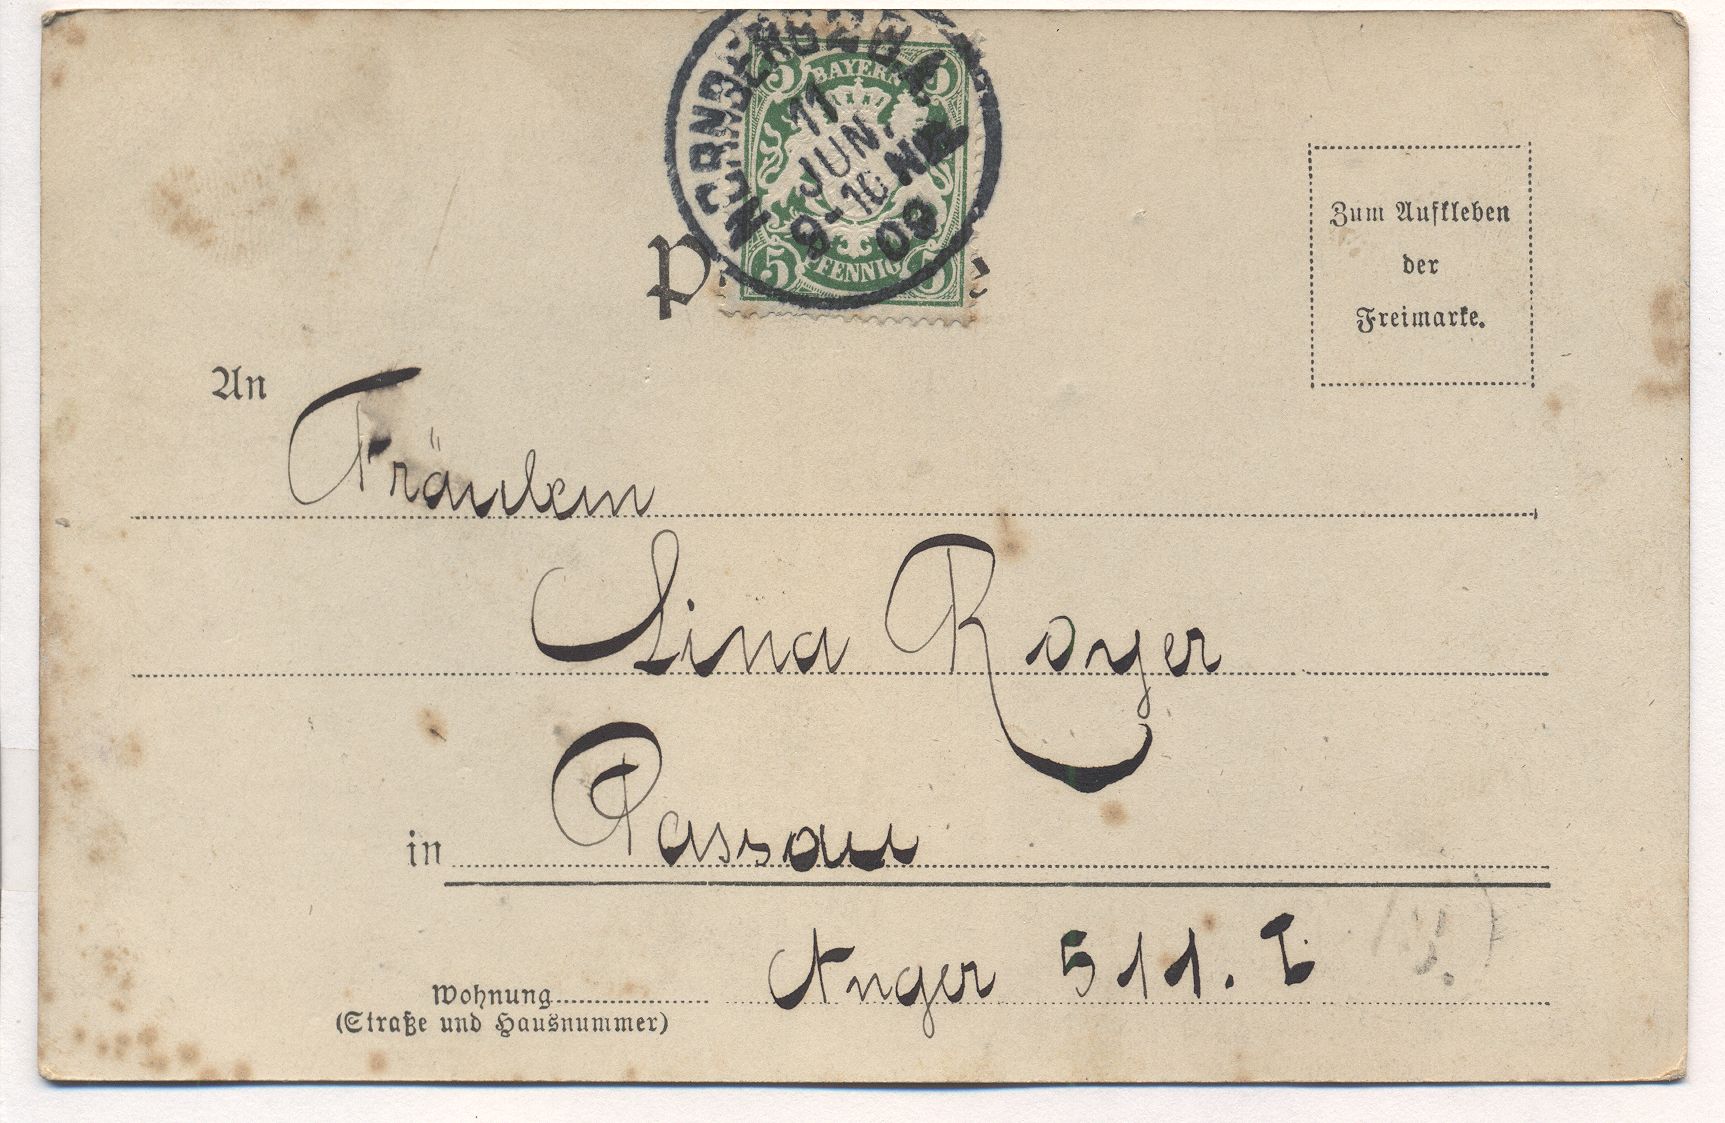 NÜRNBERG 2 B.A.
11
JUN.
9-10 NM
03
5 BAYERN 5
5 PFENNIG 5
Zum Aufkleben
der
Freimarke.
An
Fräulein
Lina Royer
in Passau
Anger 511. I
Wohnung
(Straße und Hausnummer)